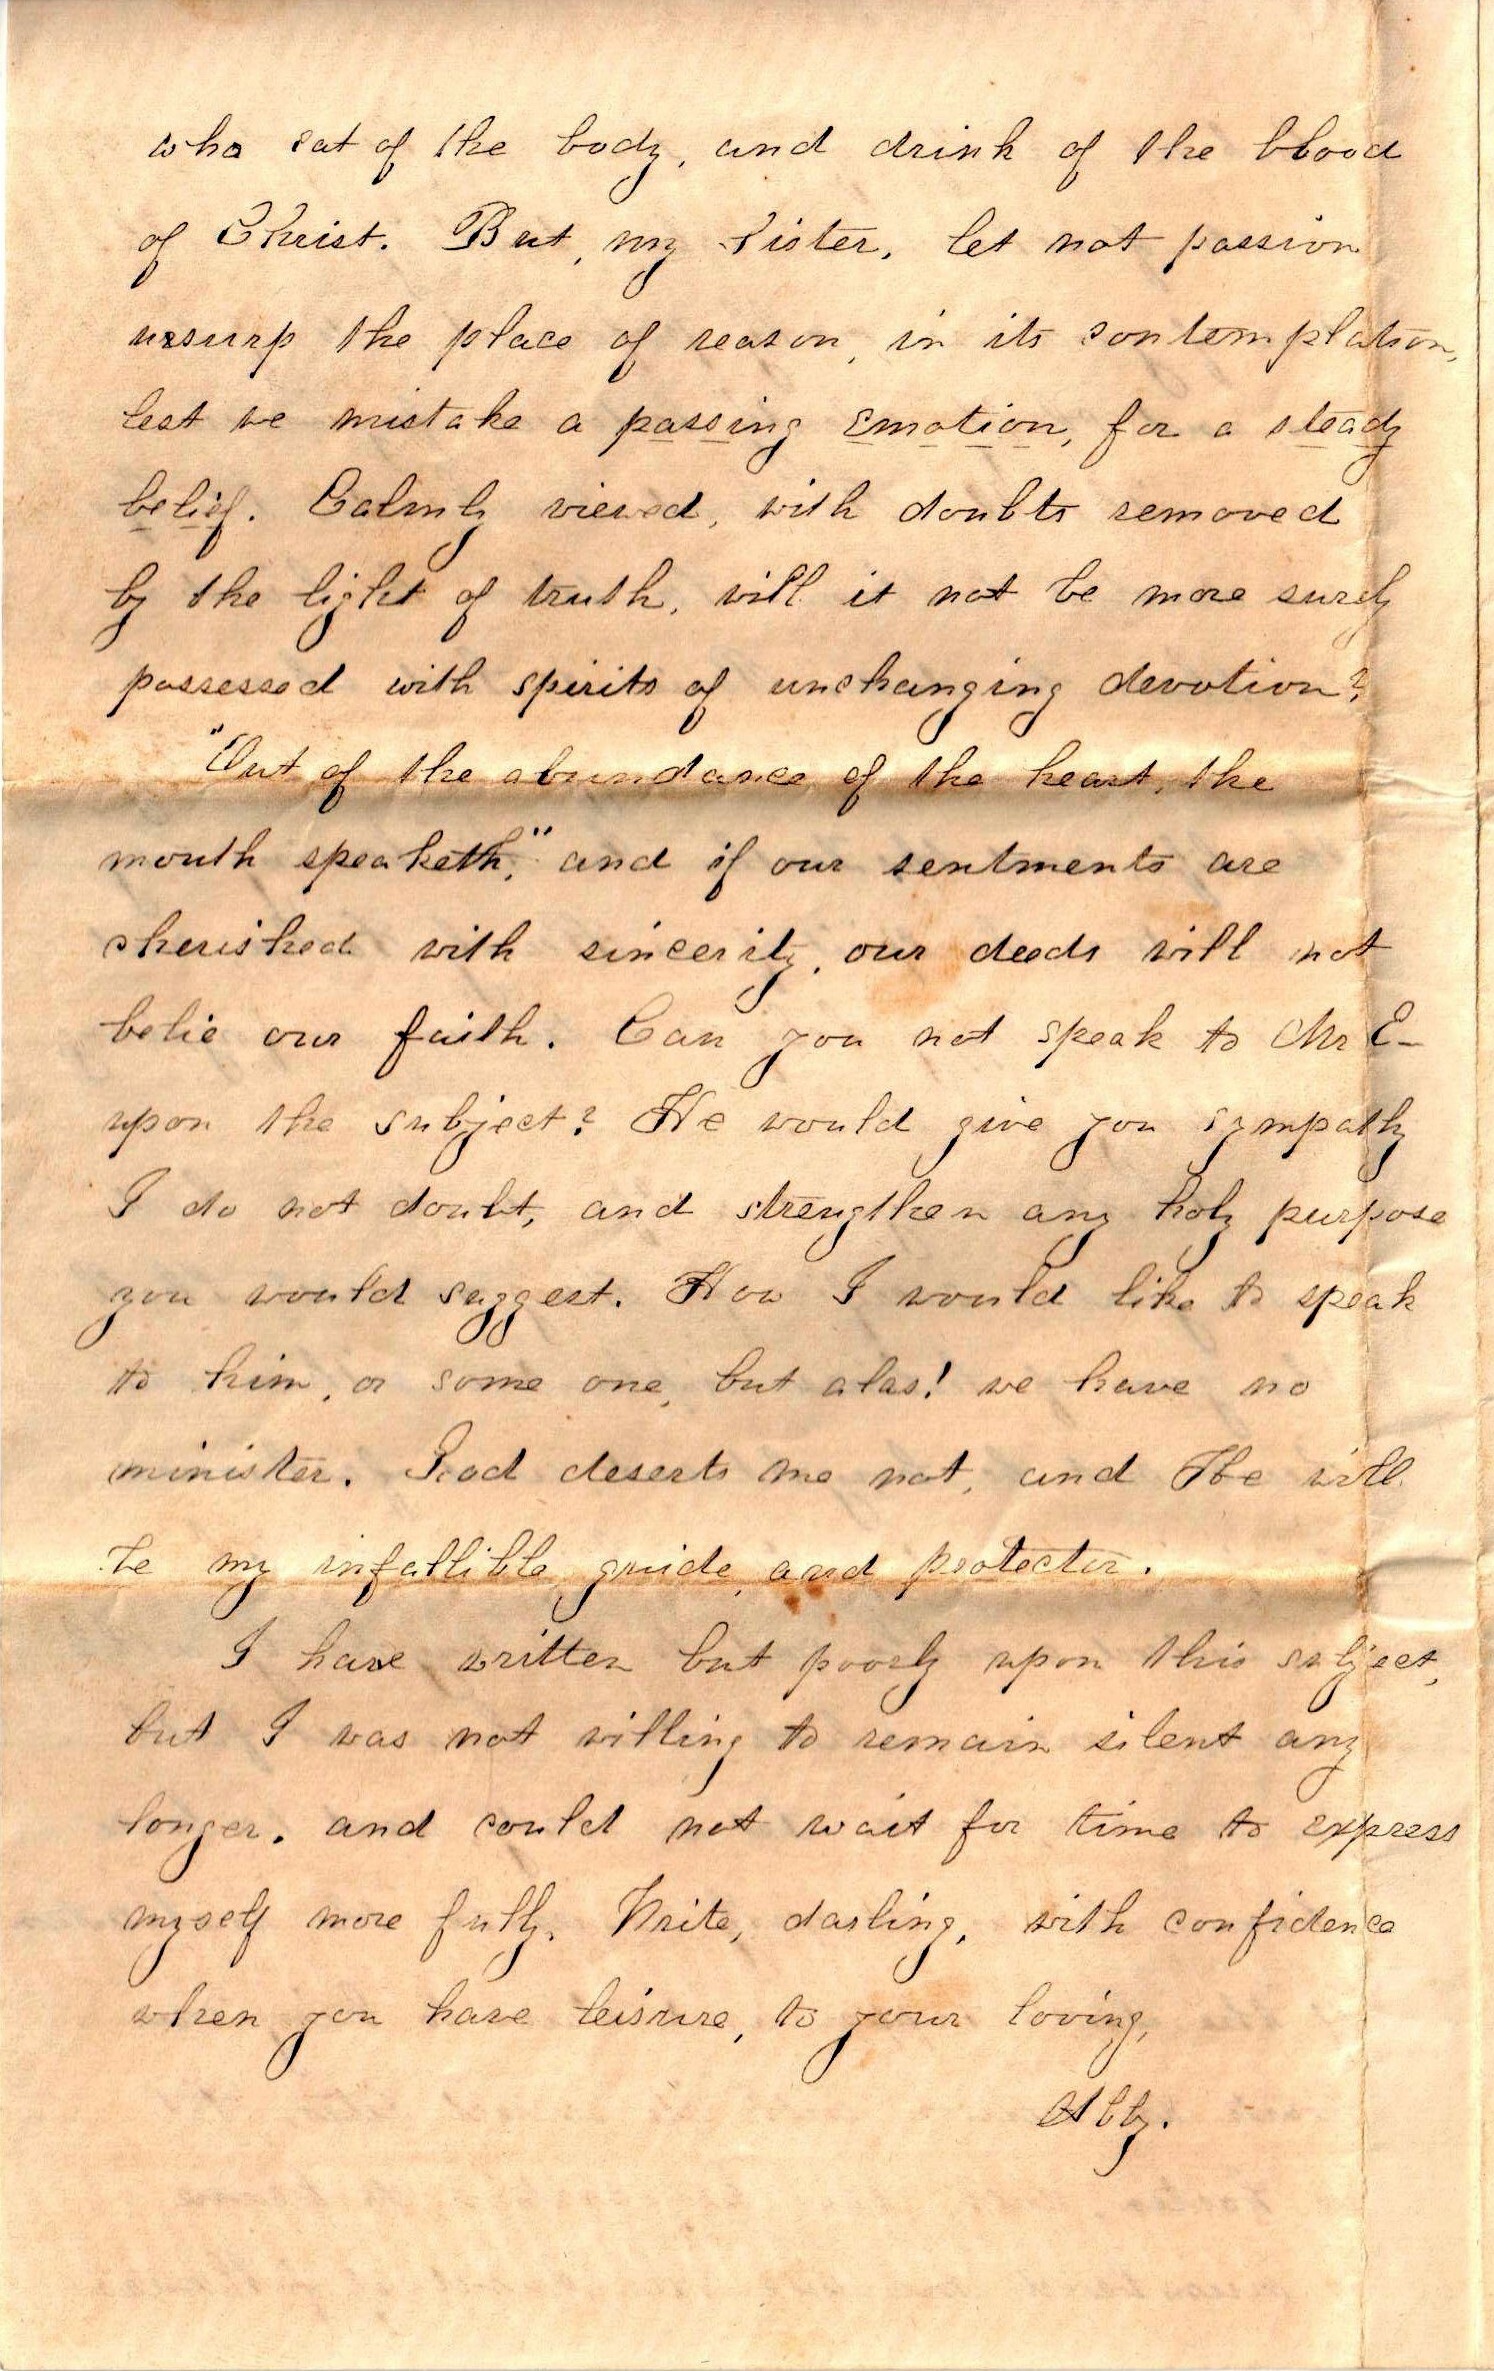 who eat of the body, and drink of the blood
of Christ. But, my Sister, let not passion
usurp the place of reason, in its contemplation,
lest we mistake a passing emotion, for a steady
belief. Calmly viewed, with doubts removed
by the light of truth, will it not be more surely
possessed with spirits of unchanging devotion?
"Out of the abundance of the heart, the
mouth speaketh," and if our sentments are
cherished with sincerity, our deeds will not
belie our faith. Can you not speak to Mr E-
upon the subject? He would give you sympathy
I do not doubt, and strengthen any holy purpose
you would suggest. How I would like to speak
to him, or some one, but alas! we have no
minister. God deserts me not, and He will
be my infallible guide, and protector.
I have written but poorly upon this subject,
but I was not willing to remain silent any
longer, and could not wait for time to express
myself more fully. Write, darling, with confidence
when you have leisure, to your loving,
Abby.